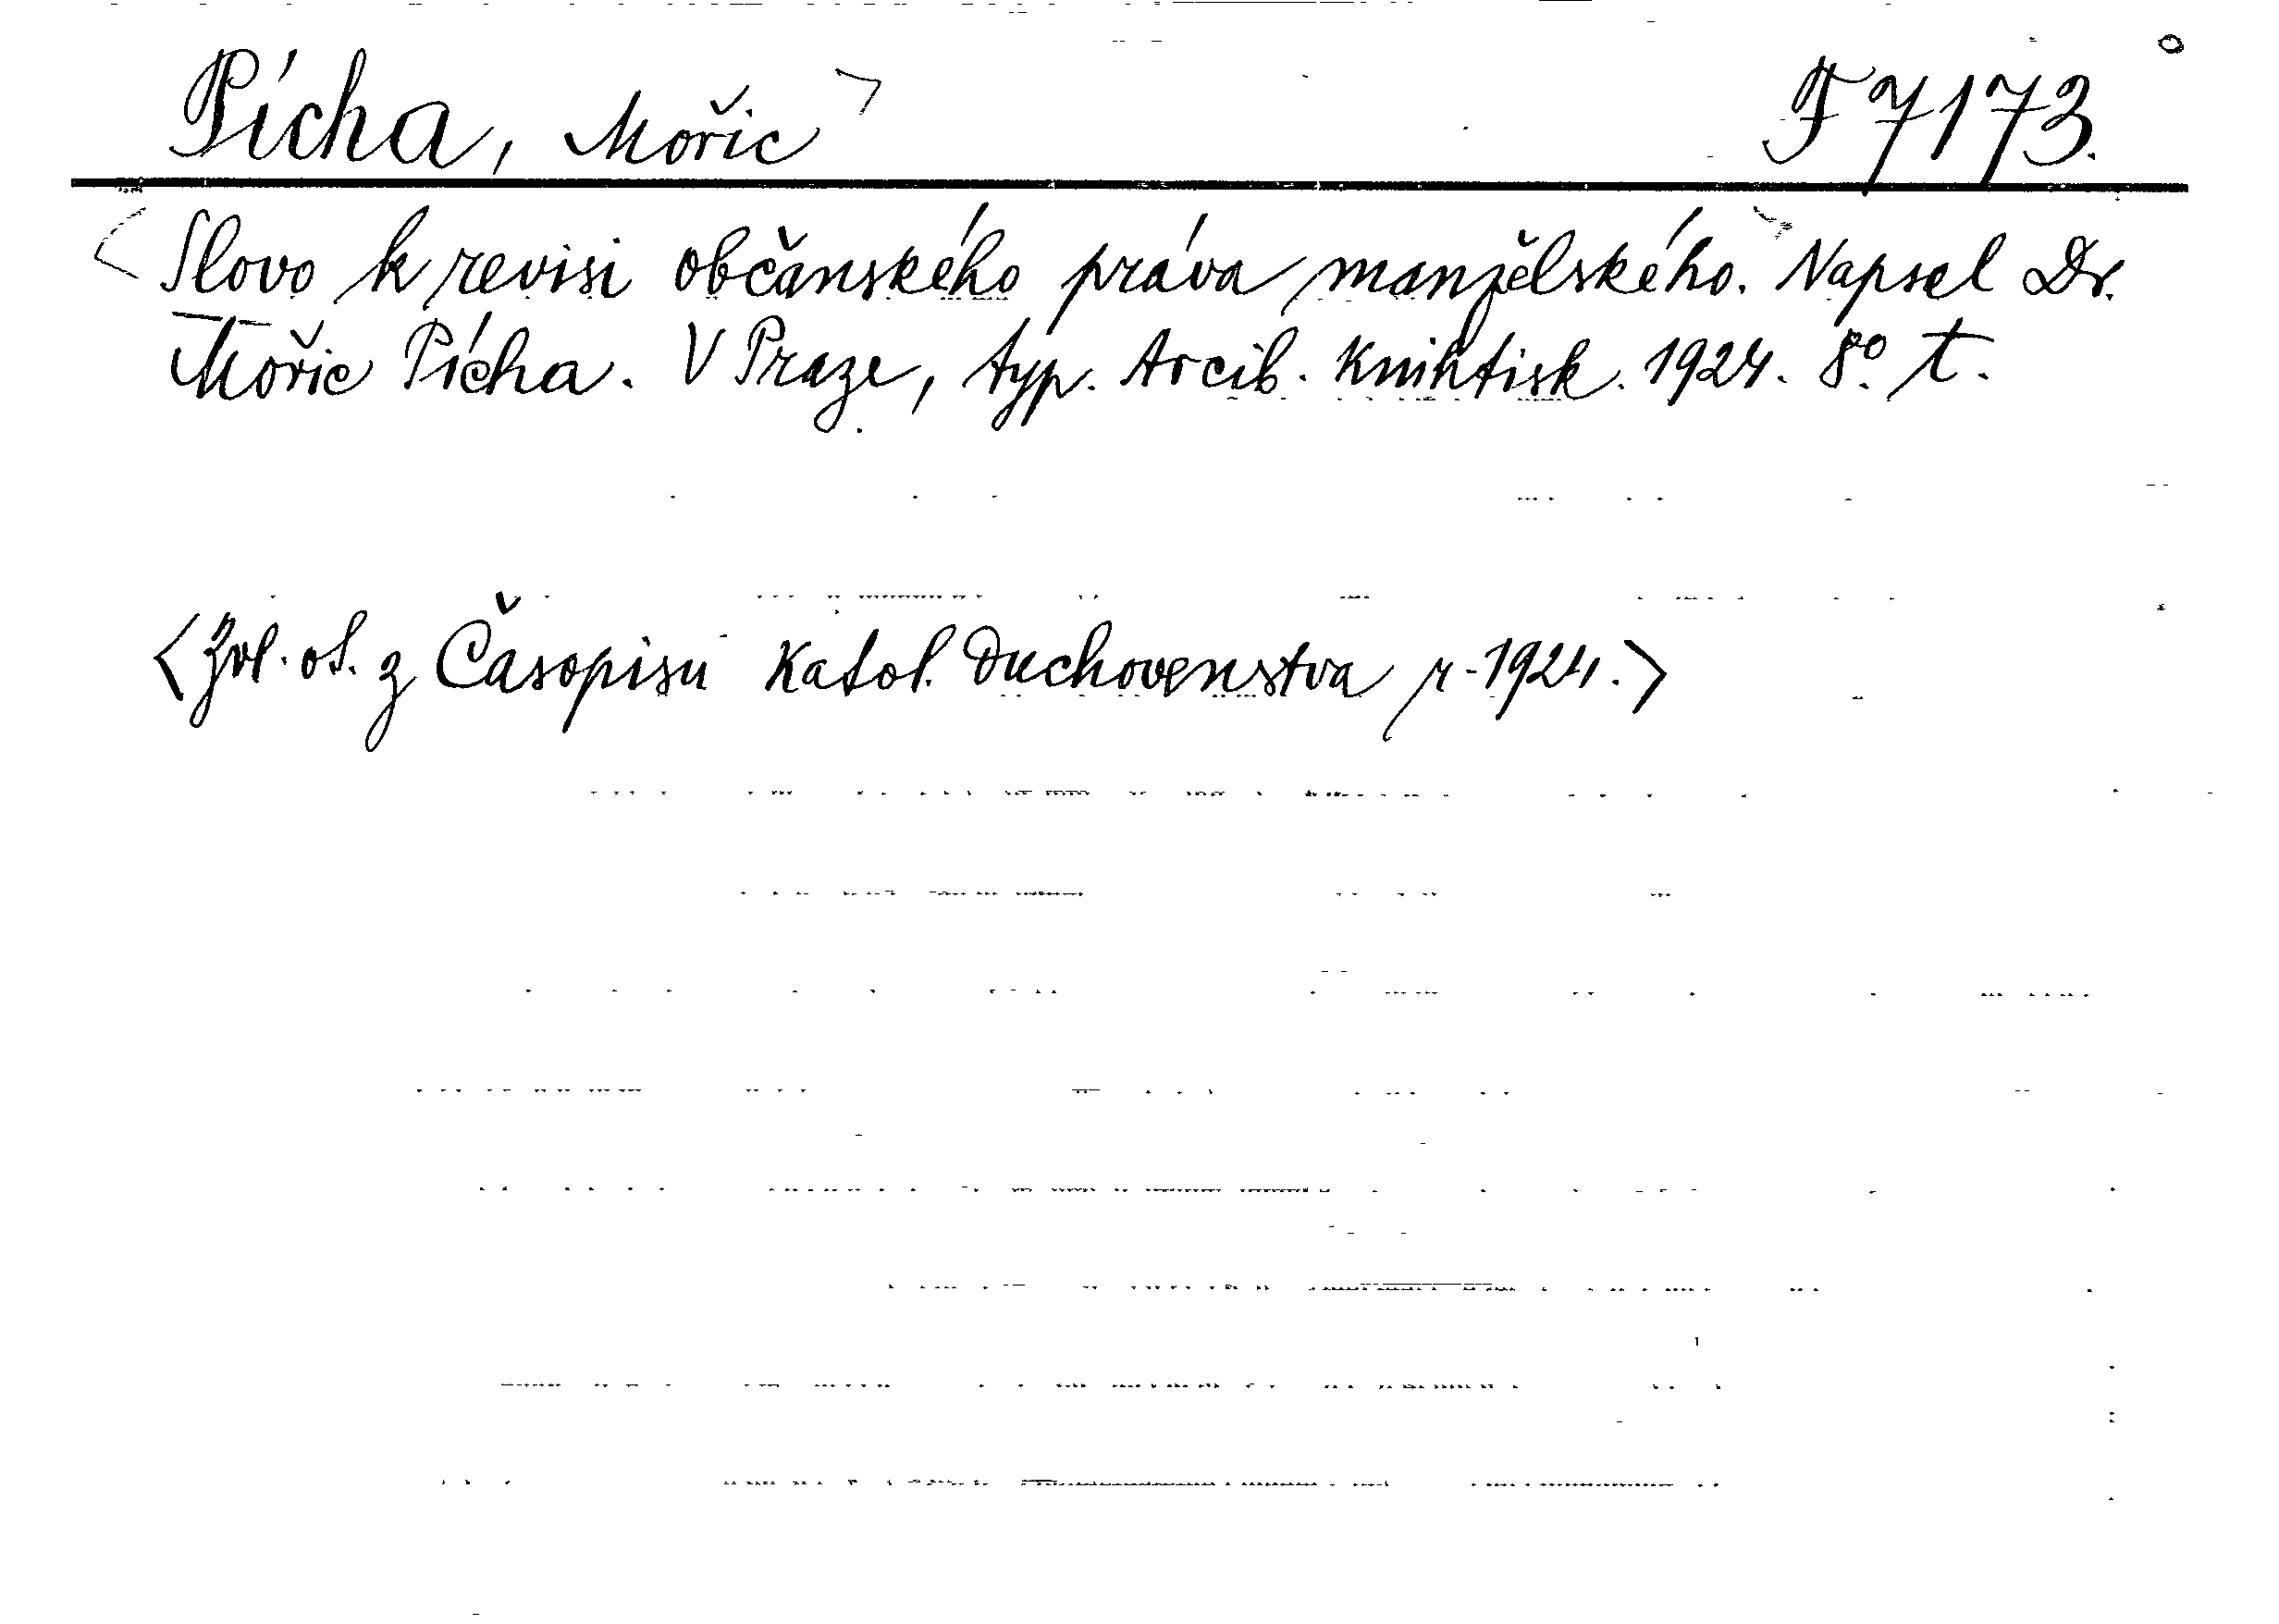 Pícha, Mořic F 7173.
<Slovo k revisi občanského práva manžělského.> Napsal Dr.
Mořic Pícha. V Praze, typ. Arcib. Knihtisk. 1924. 8º. t.
<Zvl. ot. z Časopisu Katol. Duchovenstva r. 1924.>